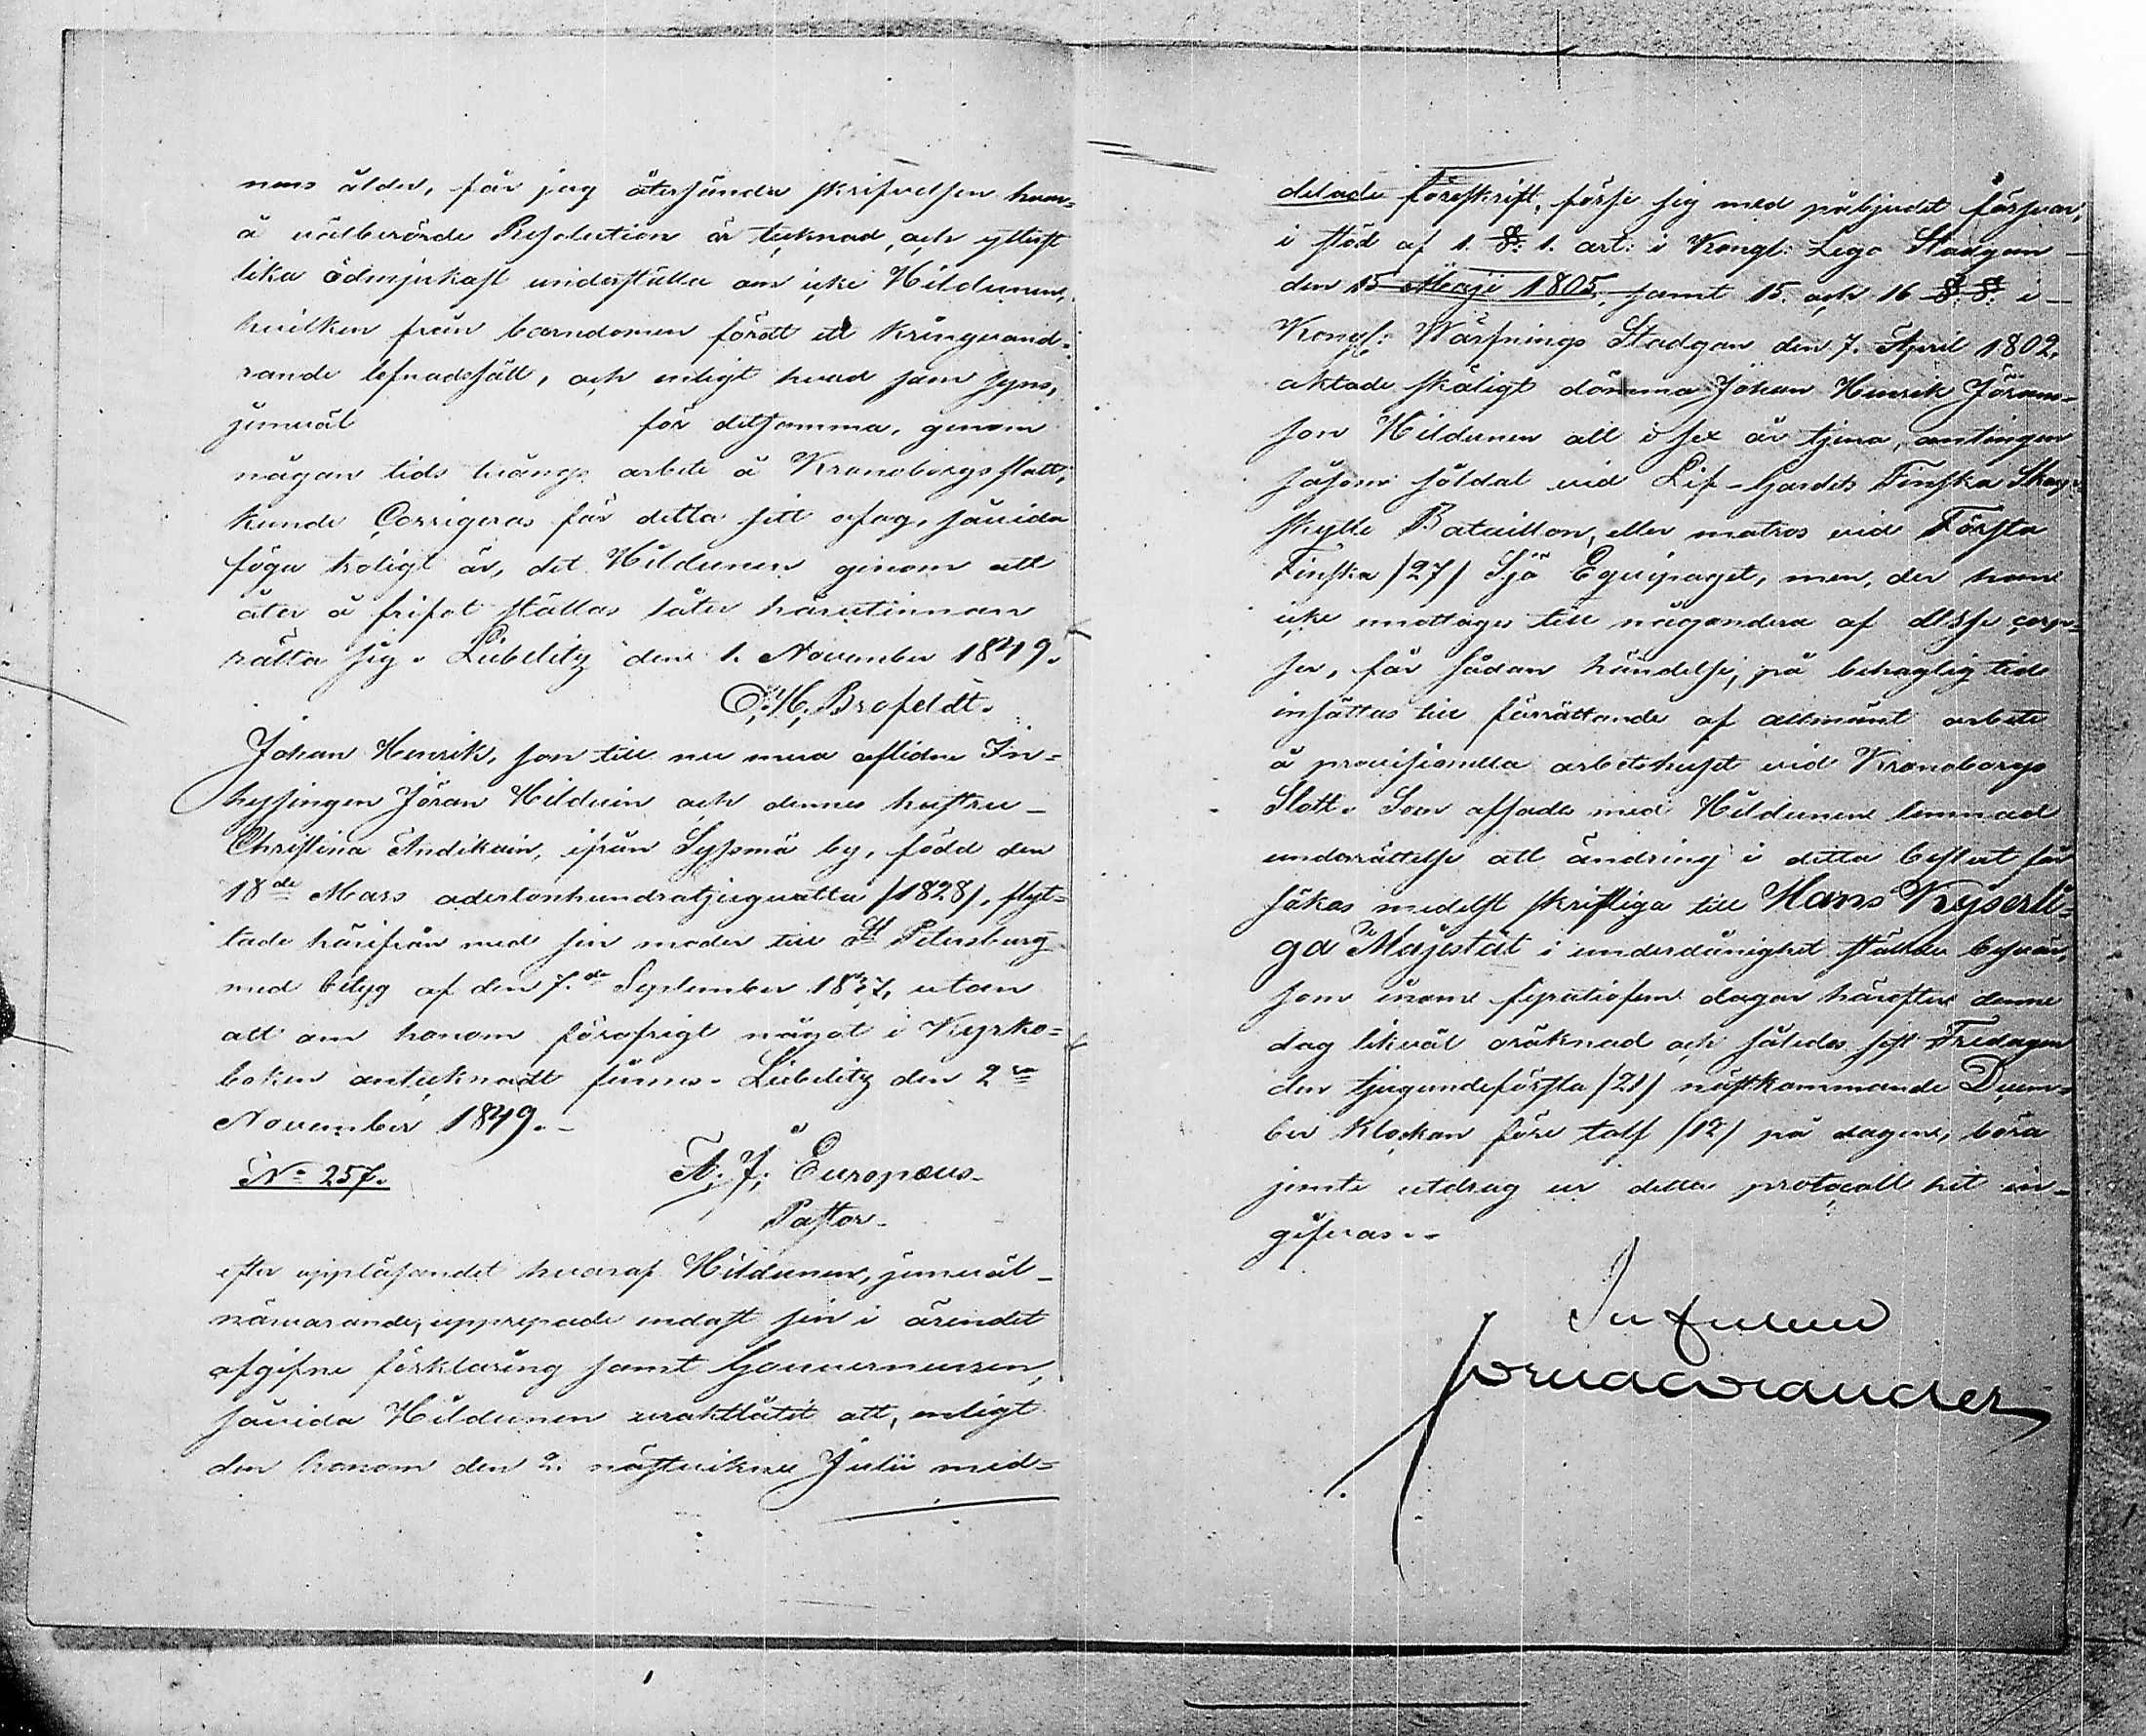 nens ålder, får jag återsända skrifvelsen hvar=
å välberörde Resolution är tecknad, och ytterst
lika ödmjukast underställa om icke Hildunen,
hvilken från barndomen fördt ett kringvand=
rande lefnadssätt, och enligt hvad som synes,
jemväl för detsamma, genom
någon tids tvångs arbete å Kronoborgs slott,
kunde Corrigeras för detta sitt ofog, såvida
föga troligt är, det Hildunen genom att
åter å frifot ställas låter härutinnan
rätta sig. Libelitz den 1. November 1849.
C. H. Brofeldt.
Johan Henrik, son till nu mera aflidne In=
hysingen Jöran Hilduin och dennes hustru
Christina Andikain, ifrån Sysmä by, född den
18de Mars adertonhundratjuguåtta /1828/, flyt=
tade härifrån med sin moder till St Petersburg
med betyg af den 7.de September 1837, utan
att om honom föröfrigt något i Kyrko=
boken antecknadt finnes. Libelitz den 2
November 1849.
No 257.
A. J. Europæus
Pastor.
efter uppläsandet hvaraf Hildunen, jemväl
närvarande, upprepade endast sin i ärendet
afgifne förklaring samt Gouverneuren,
såvida Hildunen uraktlåtit att, enligt
den honom den 2. nästvikne Julii med=
delade föreskrift, förse sig med påbjudet försvar,
i stöd af 1. §. 1. art: i Kongl: Lego Stadgan
den 15 Maji 1805, samt 15. och 16 §. §. i
Kongl: Wärfnings Stadgan den 7. April 1802,
aktade skäligt dömma Johan Henrik Jörans=
son Hildunen att i sex år tjena, antingen
såsom soldat vid Lif-Gardets Finska Skarp=
skytte Bataillon, eller matros vid Första
Finska /27/ Sjö Equipaget, men, der han
icke emottages till någondera af desse corp=
ser, för sådan händelse, på behaglig tid
insättas till förrättande af allmänt arbete
å provisionella arbetshuset vid Kronoborgs
Slott. Som afsades med Hildunen lemnad
underrättelse att ändring i detta beslut får
sökas medelst skriftliga till Hans Kejserli=
ga Majestät i underdånighet ställde besvär,
som inom fyratiofem dagar härefter denne
dag likväl oräknad och således sist Fredagen
den tjugundeförsta /21/ nästkommande Decem=
ber klockan före tolf /12/ på dagen, böra
jemte utdrag ur detta protocoll hit in=
gifvas.
In fidem